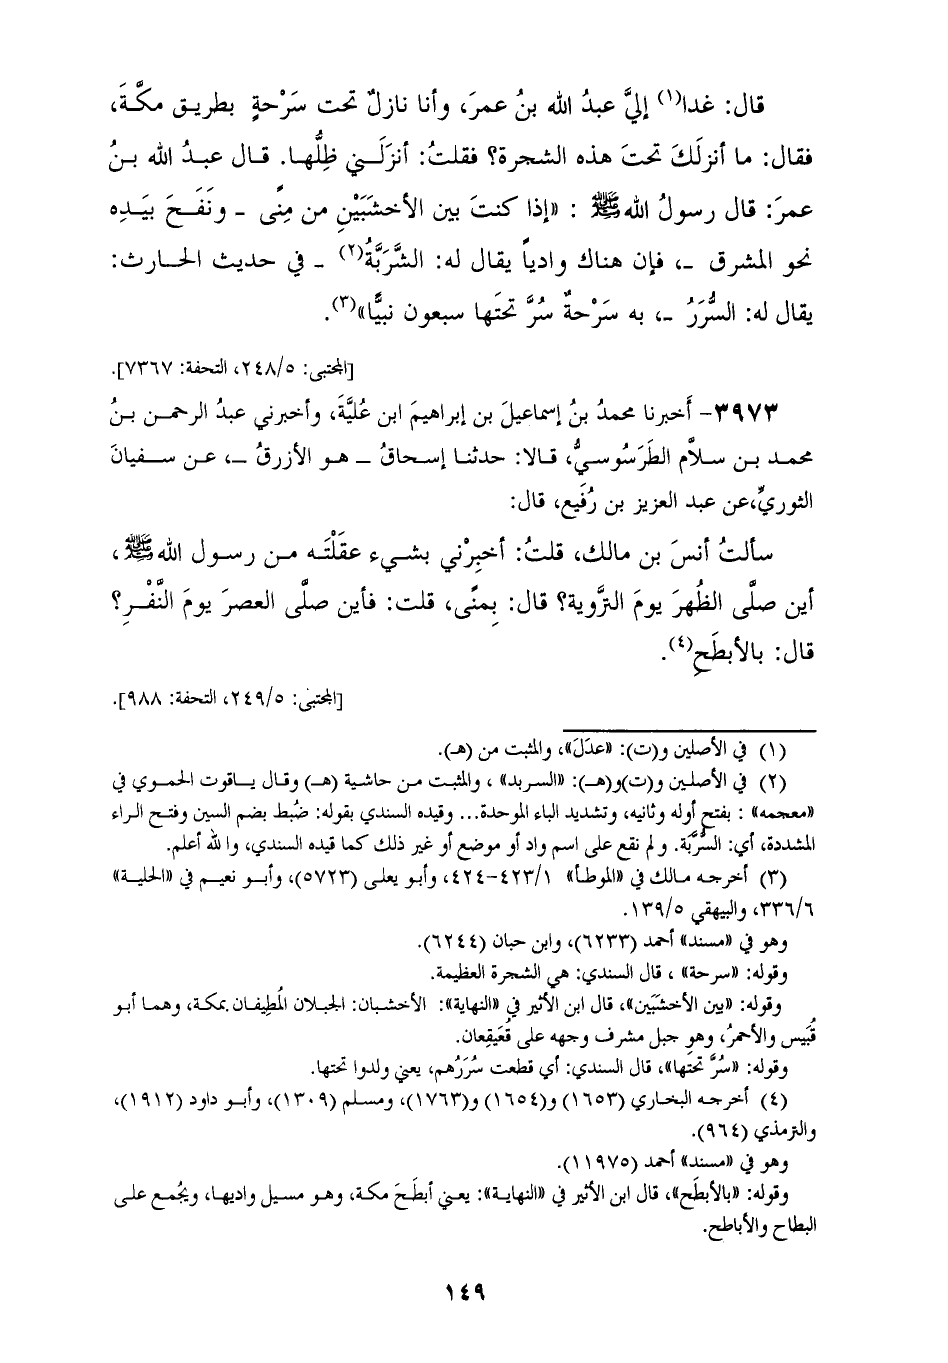 قال: غدا(١) إليَّ عبدُ الله بنُ عمرَ، وأنا نازلٌ تحت سَرْحةٍ بطريق مكَّةَ،
فقال: ما أنزلَكَ تحتَ هذه الشجرة؟ فقلتُ: أنزلَني ظِلُّها. قال عبدُ الله بنُ
عمرَ: قال رسولُ الله ﷺ : «إذا كنتَ بين الأخشَبَيْنِ من مِنًى ـ ونَفَحَ بيَدِه
نحو المشرق ـ، فإن هناك وادياً يقال له: الشَّرَبَّةُ(٢) ـ في حديث الحارث:
يقال له: السُّرَرُ ـ، به سَرْحةٌ سُرَّ تحتَها سبعون نبيًّا»(٣).
[المجتبى: ٢٤٨/٥، التحفة: ٧٣٦٧].
٣٩٧٣- أخبرنا محمدُ بنُ إسماعيلَ بن إبراهيمَ ابن عُليَّةَ، وأخبرني عبدُ الرحمن بنُ
محمد بن سلاَّم الطَرَسُوسيُّ، قالا: حدثنا إسحاقُ ـ هو الأزرقُ ـ، عن سفيانَ
الثوريِّ،عن عبد العزيز بن رُفَيع، قال:
سألتُ أنسَ بن مالك، قلتُ: أخبِرْني بشيء عقَلْتَه من رسول الله ﷺ،
أين صلَّى الظُهرَ يومَ التَّروية؟ قال: بِمنًى، قلت: فأين صلَّى العصرَ يومَ النَّفْرِ؟
قال: بالأبطَحِ(٤).
[المجتبى: ٢٤٩/٥، التحفة: ٩٨٨].
(١) في الأصلين و(ت): «عدَلَ»، والمثبت من (هـ).
(٢) في الأصلين و(ت)و(هـ): «السربد» ، والمثبت من حاشية (هـ) وقال ياقوت الحموي في
«معجمه» : بفتح أوله وثانيه، وتشديد الباء الموحدة... وقيده السندي بقوله: ضُبط بضم السين وفتح الراء
المشددة، أي: السُّرَّبَة. ولم نقع على اسم واد أو موضع أو غير ذلك كما قيده السندي، والله أعلم.
(٣) أخرجه مالك في «الموطأ» ٤٢٣/١-٤٢٤، وأبو يعلى (٥٧٢٣)، وأبو نعيم في «الحلية»
٣٣٦/٦، والبيهقي ١٣٩/٥.
وهو في «مسند» أحمد (٦٢٣٣)، وابن حبان (٦٢٤٤).
وقوله: «سرحة» ، قال السندي: هي الشجرة العظيمة.
وقوله: «بين الأخشَبَين»، قال ابن الأثير في «النهاية»: الأخشبان: الجبلان المُطيفان بمكة، وهما أبو
قُبَيس والأحمرُ، وهو جبل مشرف وجهه على قُعَيقِعان.
وقوله: «سُرَّ تحتَها»، قال السندي: أي قطعت سُرَرُهم، يعني ولدوا تحتها.
(٤) أخرجه البخاري (١٦٥٣) و(١٦٥٤) و(١٧٦٣)، ومسلم (١٣٠٩)، وأبو داود (١٩١٢)،
والترمذي (٩٦٤).
وهو في «مسند» أحمد (١١٩٧٥).
وقوله: «بالأبطَح»، قال ابن الأثير في «النهاية»: يعني أبطَحَ مكة، وهو مسيل واديها، ويُجمع على
البطاح والأباطح.
١٤٩